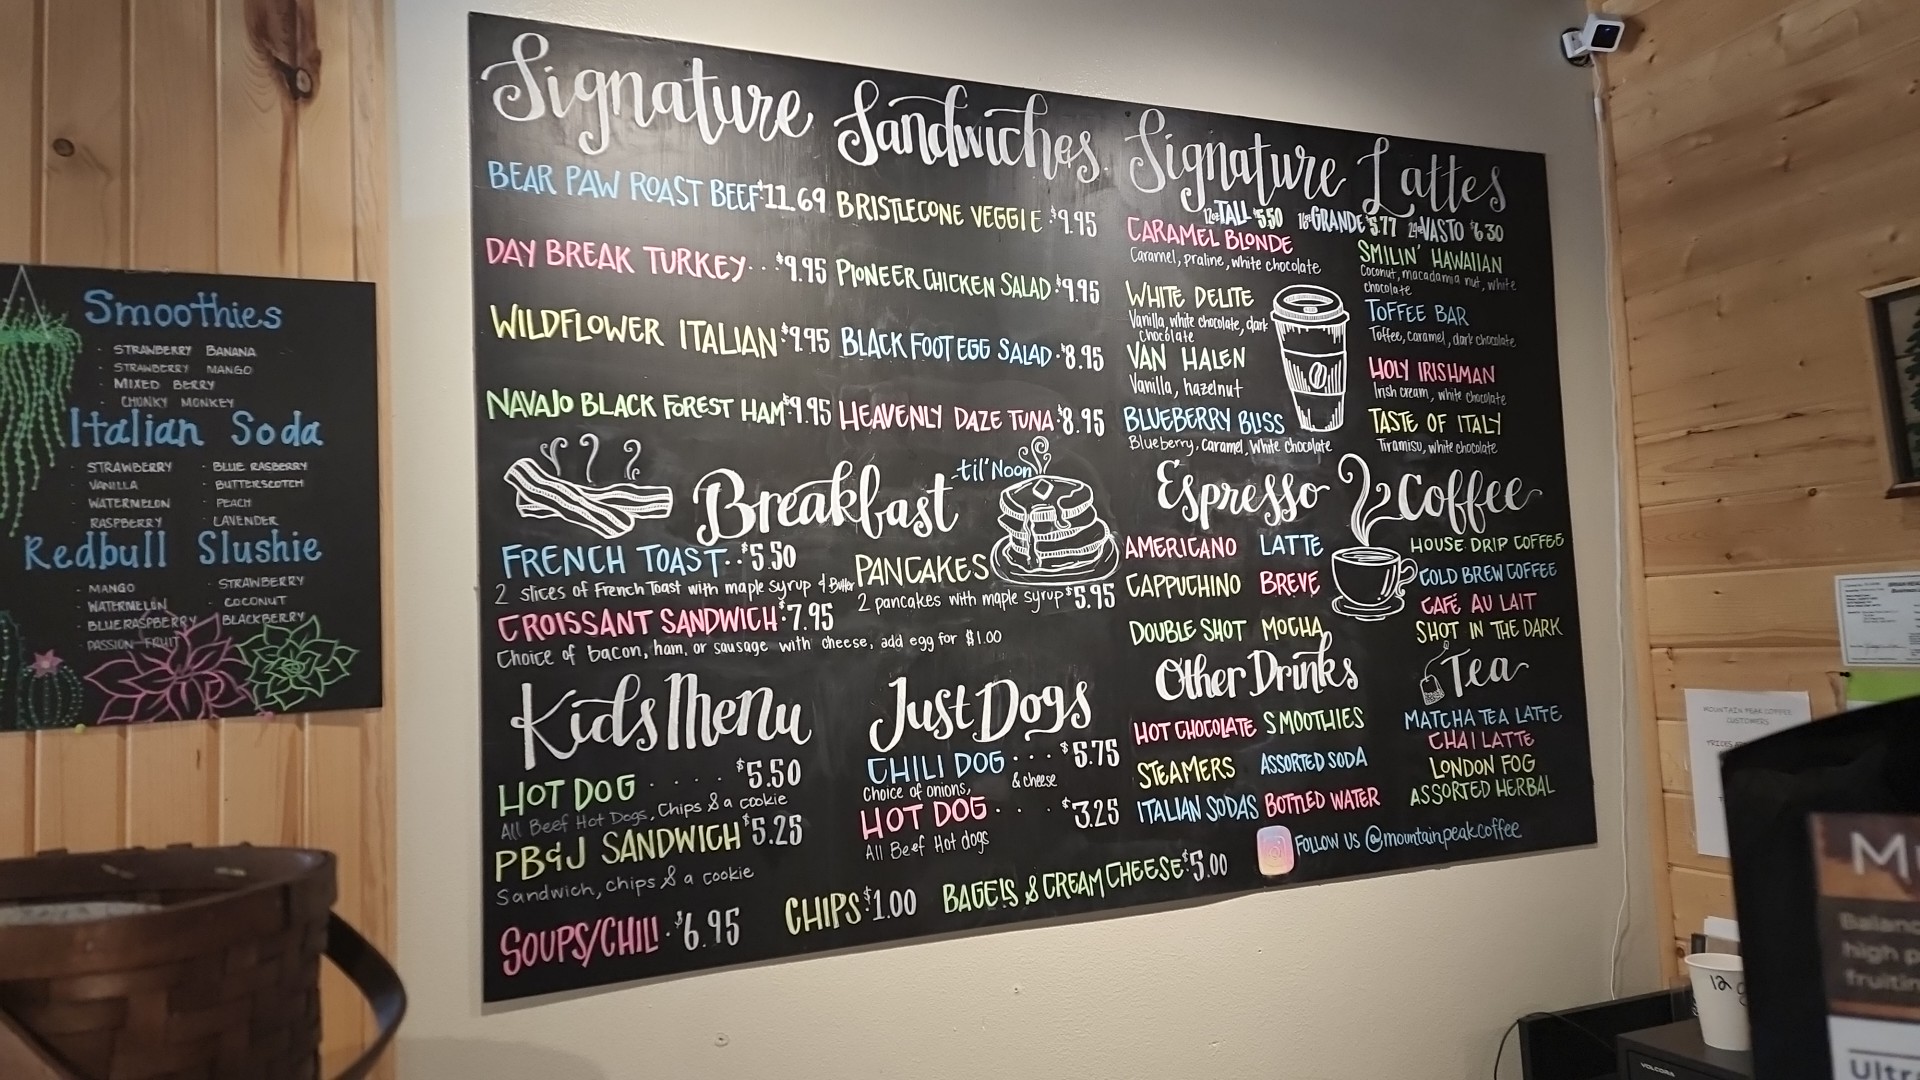 Signature Sandwiches
BEAR PAW ROAST BEEF $11.69
DAY BREAK TURKEY... $9.95
WILDFLOWER ITALIAN $9.95
NAVAJO BLACK FOREST HAM $9.95
BRISTLECONE VEGGIE $9.95
PIONEER CHICKEN SALAD $9.95
BLACK FOOT EGG SALAD $8.95
HEAVENLY DAZE TUNA $8.95
Signature Lattes
12oz TALL $5.50 16oz GRANDE $5.77 24oz VASTO $6.30
CARAMEL BLONDE
Caramel, praline, white chocolate
WHITE DELITE
Vanilla, white chocolate, dark
chocolate
VAN HALEN
Vanilla, hazelnut
BLUEBERRY BLISS
Blueberry, caramel, white chocolate
SMILIN' HAWAIIAN
Coconut, macadamia nut, white
chocolate
TOFFEE BAR
Toffee, caramel, dark chocolate
HOLY IRISHMAN
Irish cream, white chocolate
TASTE OF ITALY
Tiramisu, white chocolate
Breakfast -til' Noon
FRENCH TOAST.. $5.50
2 slices of French Toast with maple syrup & Butter
CROISSANT SANDWICH $7.95
Choice of bacon, ham, or sausage with cheese, add egg for $1.00
PANCAKES
2 pancakes with maple syrup $5.95
Espresso
AMERICANO LATTE
CAPPUCHINO BREVE
DOUBLE SHOT MOCHA
Coffee
HOUSE DRIP COFFEE
COLD BREW COFFEE
CAFÉ AU LAIT
SHOT IN THE DARK
Kids Menu
HOT DOG . . . . . $5.50
All Beef Hot Dogs, Chips & a cookie
PB&J SANDWICH $5.25
Sandwich, chips & a cookie
SOUPS/CHILI $6.95
Just Dogs
CHILI DOG . . . $5.75
Choice of onions, & cheese
HOT DOG . . . $3.25
All Beef Hot dogs
CHIPS $1.00
BAGELS & CREAM CHEESE $5.00
Other Drinks
HOT CHOCOLATE SMOOTHIES
STEAMERS ASSORTED SODA
ITALIAN SODAS BOTTLED WATER
Tea
MATCHA TEA LATTE
CHAI LATTE
LONDON FOG
ASSORTED HERBAL
FOLLOW US @mountainpeakcoffee
Smoothies
STRAWBERRY BANANA
STRAWBERRY MANGO
MIXED BERRY
CHUNKY MONKEY
Italian Soda
STRAWBERRY
VANILLA
WATERMELON
RASPBERRY
BLUE RASBERRY
BUTTERSCOTCH
PEACH
LAVENDER
Redbull Slushie
MANGO
WATERMELON
BLUE RASPBERRY
PASSION FRUIT
STRAWBERRY
COCONUT
BLACKBERRY
MOUNTAIN PEAK COFFEE
CUSTOMERS
12
VOLCORA
high p
fruitin
Ultr